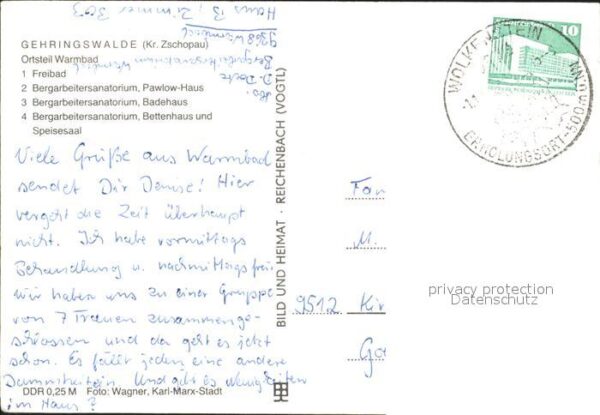 GEHRINGSWALDE (Kr. Zschopau)
Ortsteil Warmbad
1 Freibad
2 Bergarbeitersanatorium, Pawlow-Haus
3 Bergarbeitersanatorium, Badehaus
4 Bergarbeitersanatorium, Bettenhaus und
Speisesaal
Haus B, Zimmer 303
Viele Grüße aus Warmbad
sendet Dir Denise! Hier
vergeht die Zeit überhaupt
nicht. Ich habe vormittags
Behandlung u. nachmittags frei
wir haben uns zu einer Gruppe
von 7 Frauen zusammenge-
schlossen und da geht es jetzt
schon. Es fällt jeden eine andere
Dummheit ein. Und gibt es Neuigkeiten
im Haus?
DDR 0,25 M Foto: Wagner, Karl-Marx-Stadt
BILD UND HEIMAT · REICHENBACH (VOGTL)
10
WOLKENSTEIN
ERHOLUNGSORT-500M ü NN
Fam
M.
9512 Kir
privacy protection
Datenschutz